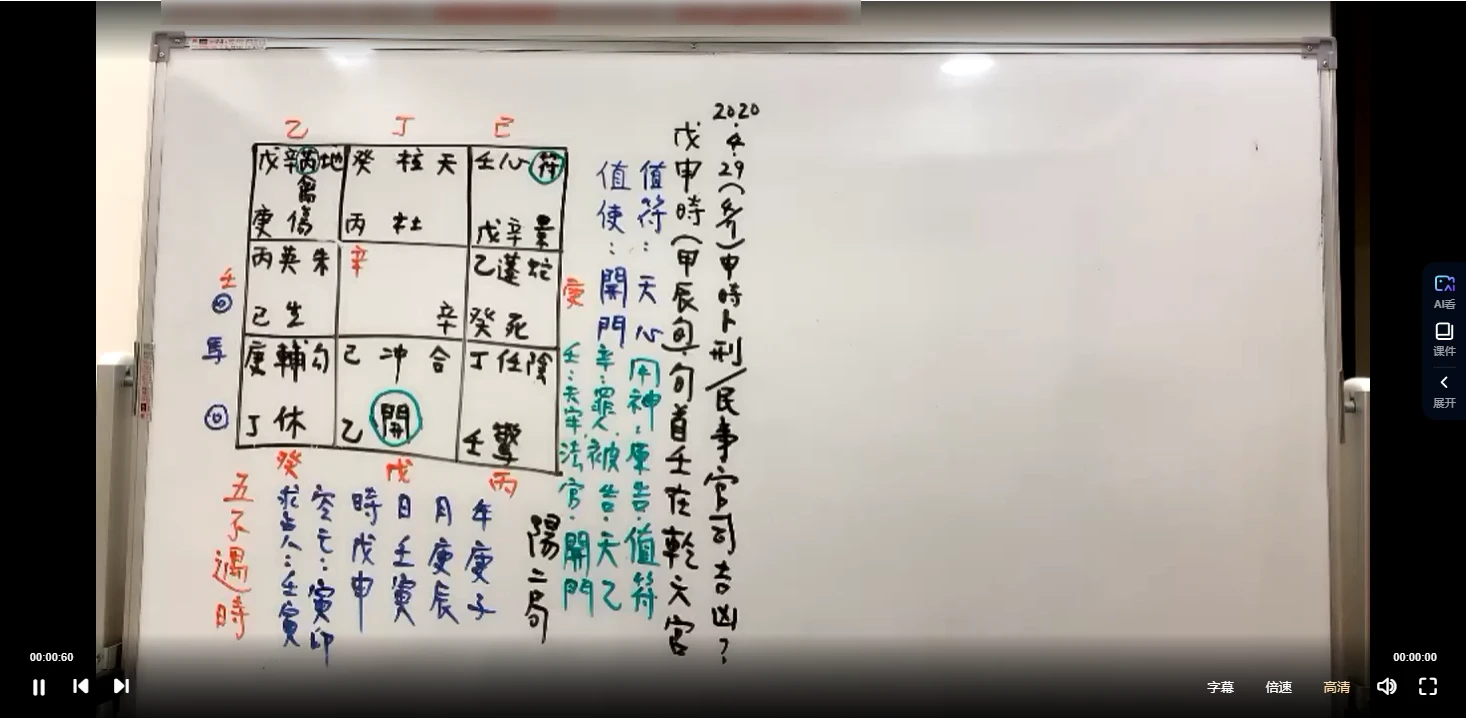 2020.4.29(爻)申時卜刑/民事官司吉凶?
戊申時(甲辰旬)旬首壬在乾六宮
值符:天心
值使:開門
用神:原告.值符
辛:罪人.被告.天乙
壬:天牢.法官.開門
陽二局
年庚子
月庚辰
日壬寅
時戊申
空亡:寅卯
求占人:壬寅
五不遇時
乙 丁 己
戊辛芮地 癸 柱 天 壬心符
禽
庚傷 丙 杜 戊辛景
壬 丙英朱 辛 乙蓬蛇 庚
己生 辛 癸死
馬 庚輔勾 己 冲 合 丁任陰
丁休 乙 開 壬驚
癸 戊 丙
AI看
课件
展开
00:00:60
00:00:00
字幕 倍速 高清